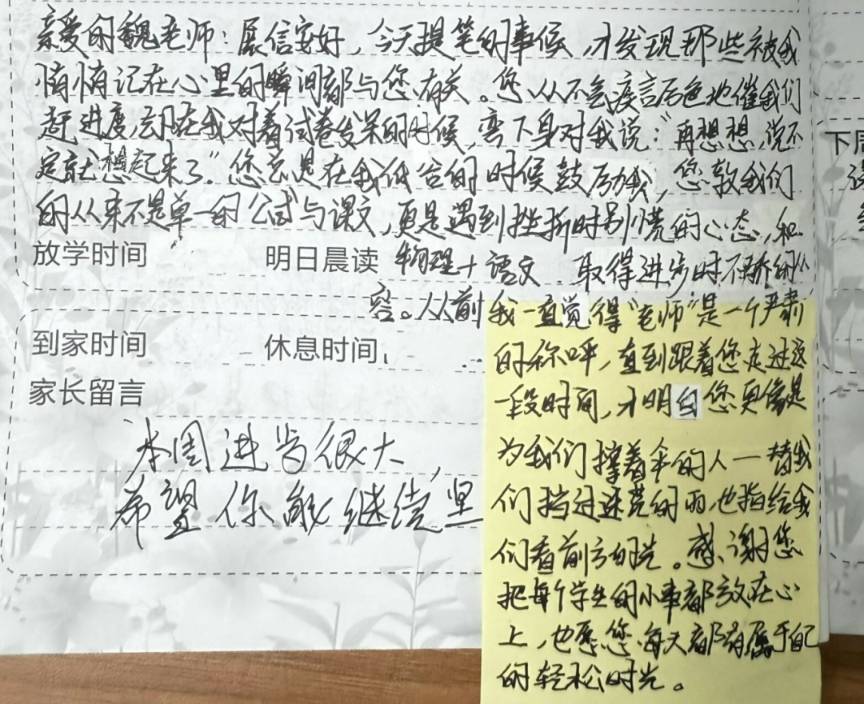 亲爱的魏老师：展信安好，今天提笔的事候，才发现那些被我
悄悄记在心里的瞬间都与您有关。您从不会疾言厉色地催我们
赶进度，却在我对着试卷发呆的时候，弯下身对我说："再想想，说不
定就想起来了"您总是在我低谷的时候鼓励我，您教我们
的从来不是单一的公式与课文，更是遇到挫折时别慌的心态，和
放学时间 明日晨读 物理+语文 取得进步时不骄的从
容。从前我一直觉得"老师"是一个严肃
到家时间 休息时间
的称呼，直到跟着您走过这
家长留言
一段时间，才明白您更像是
为我们撑着伞的人一替我
们挡过迷茫的雨，也指给我
们看前方的光。感谢您
把每个学生的小事都放在心
上，也愿您每天都有属于自己
的轻松时光。
本周进步很大，
希望你能继续坚
下周